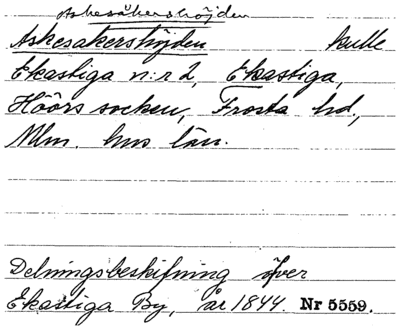 Askesåkershöjden
Askesakershöjden kulle
Ekastiga n:r 2, Ekastiga,
Höörs socken, Frosta hd,
Mlm. hus län.
Delningsbeskifning öfver
Ekastiga By, år 1844. Nr 5559.